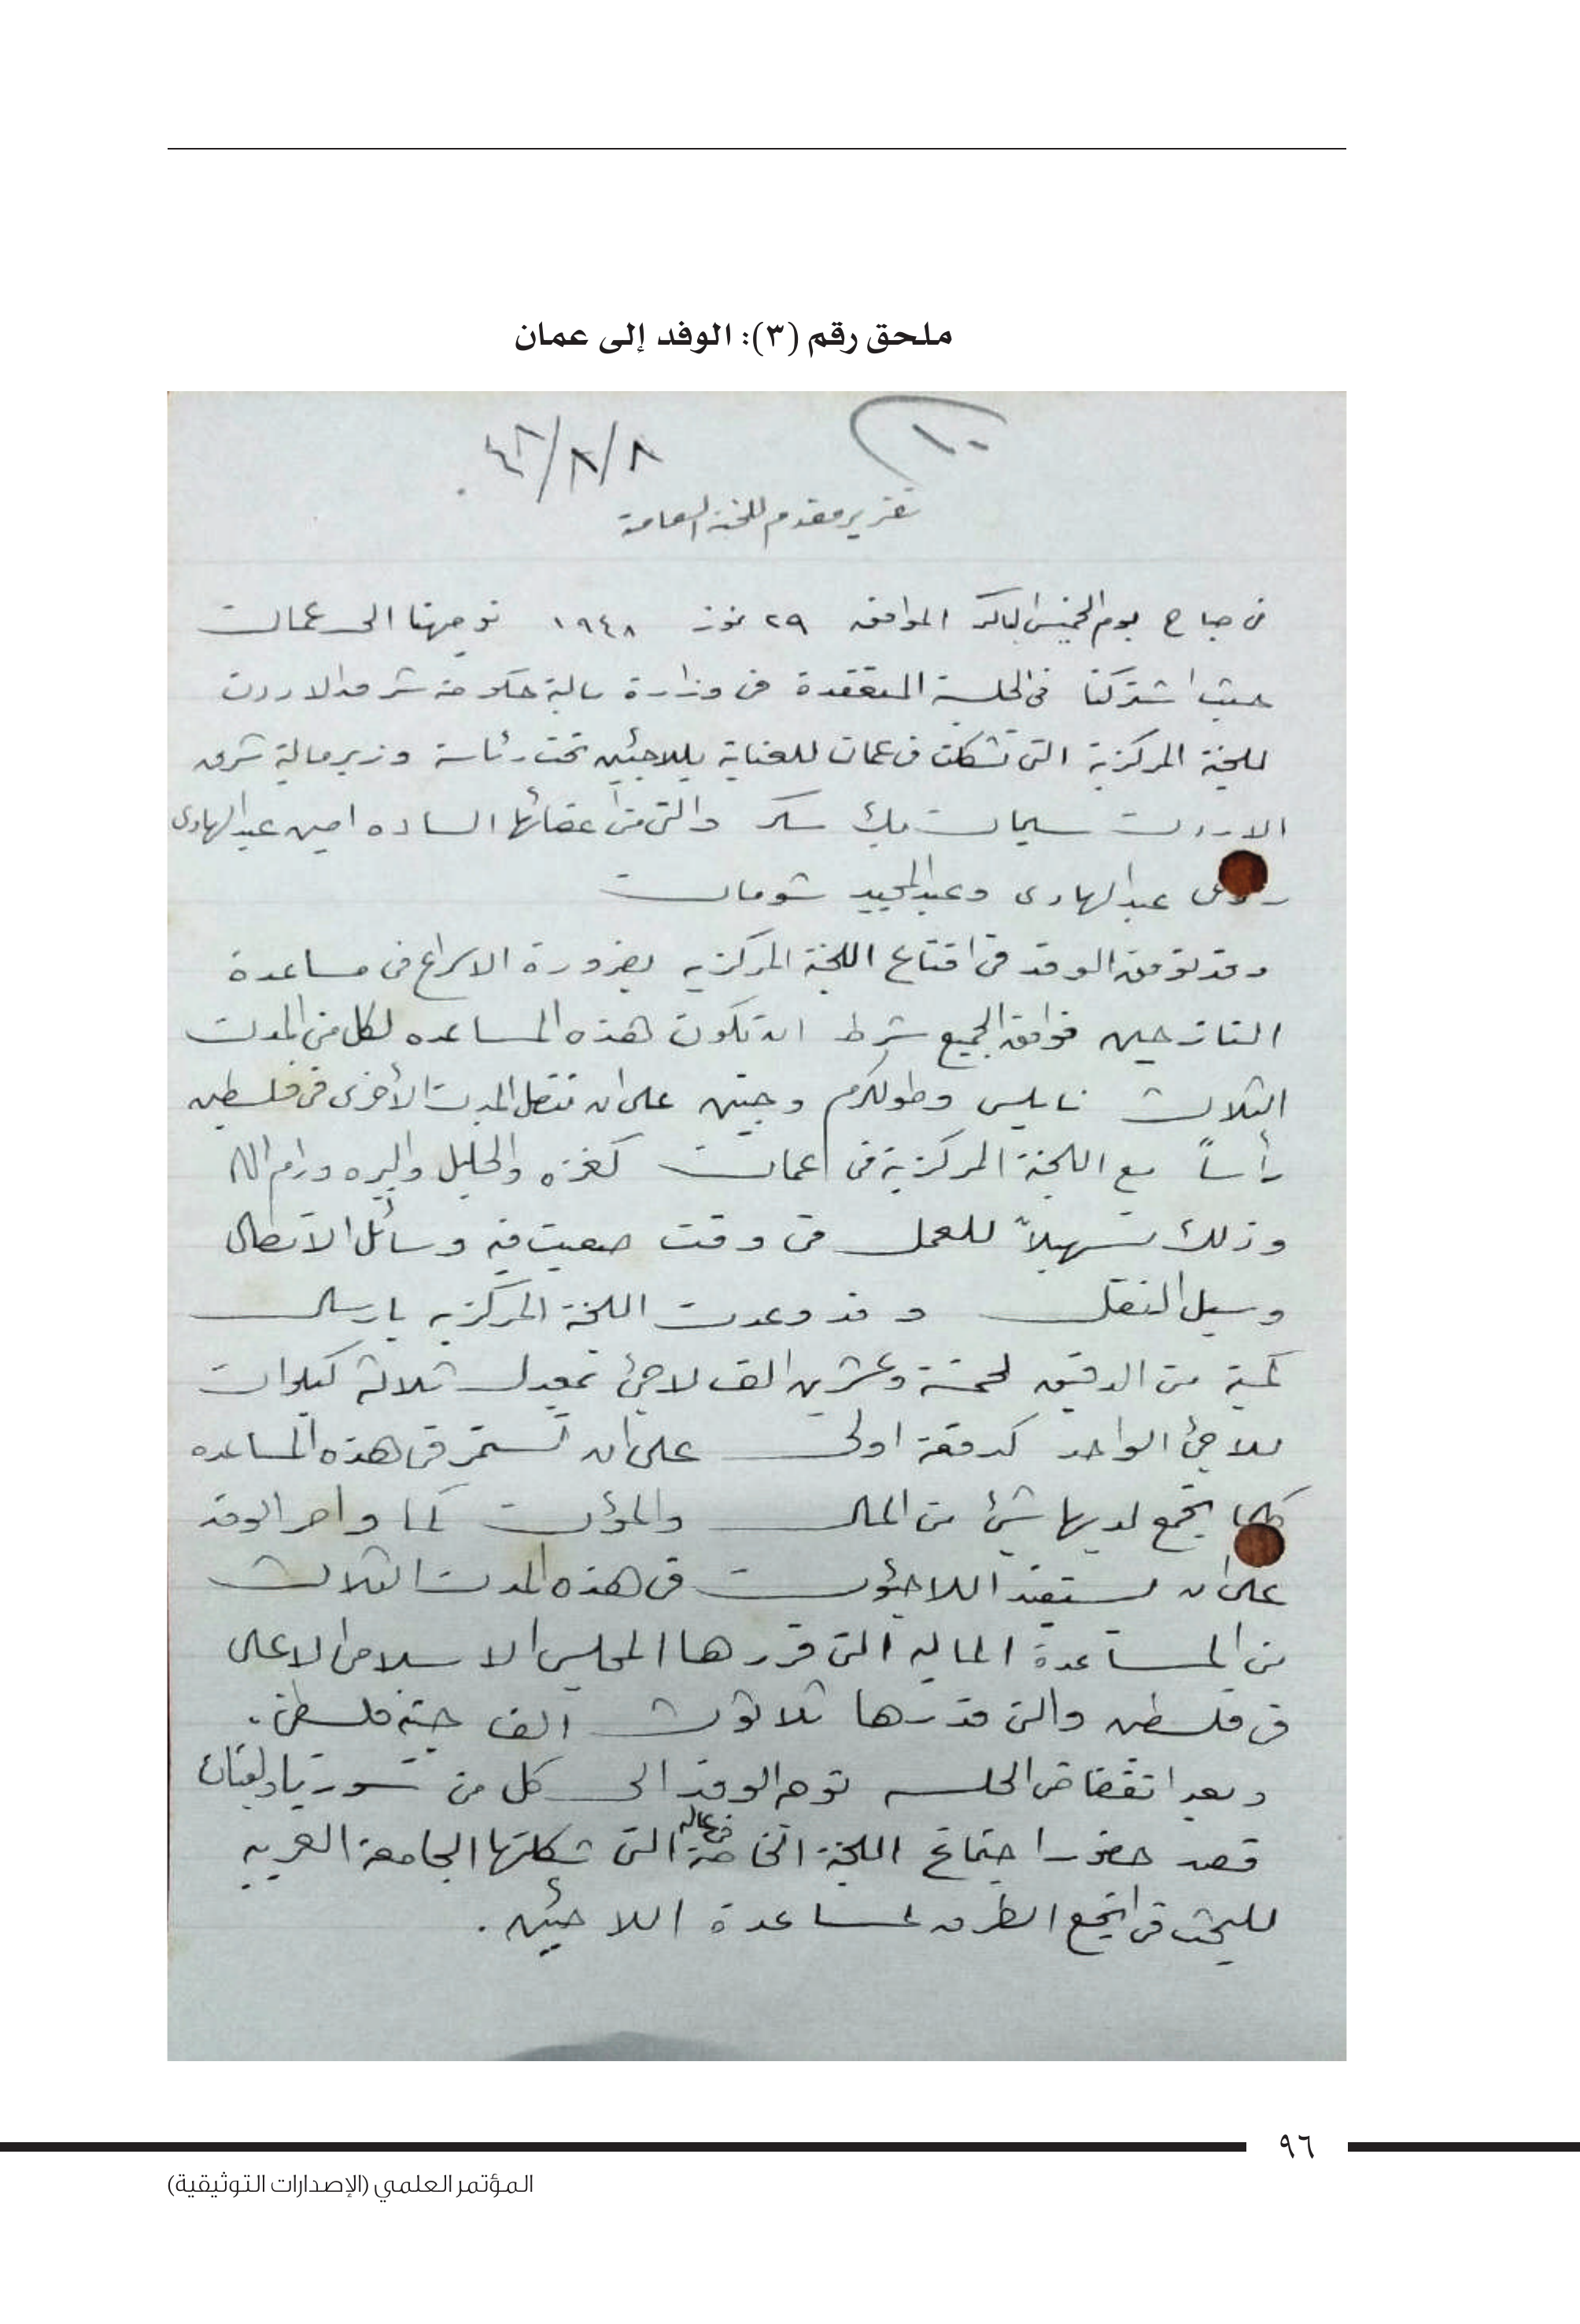 ملحق رقم (٣): الوفد إلى عمان
١٠
٤٨/٨/٨
تقرير مقدم للجنة العامة
في صباح يوم الخميس الباكر الموافق ٢٩ تموز ١٩٤٨ توجهنا الى عمان
حيث اشتركنا في الجلسة المنعقدة في وزارة مالية حكومة شرق الاردن
للجنة المركزية التي تشكلت في عمان للعناية بللاجئين تحت رئاسة وزير مالية شرق
الاردن سليمان بك سكر والتي من اعضائها الساده امين عبد الهادي
عبد الهادي وعبد المجيد شومان
وقد توفق الوفد في اقناع اللجنة المركزيه بضرورة الاسراع في مساعدة
النازحين فوافق الجميع شرط ان تكون هذه المساعده لكل من المدن
الثلاث نابلس وطولكرم وجنين على ان تتصل المدن الأخرى في فلسطين
رأساً مع اللجنة المركزية في عمان كغزه والخليل والبره ورام الله
وذلك تسهيلاً للعمل في وقت صعبت فيه وسائل الاتصال
وسبل النقل وقد وعدت اللجنة المركزيه بارسال
كمية من الدقيق لخمسة وعشرين الف لاجئ بمعدل ثلاثة كيلوات
للاجئ الواحد كدفعة اولى على ان تستمر في هذه المساعده
كلما يجمع لديها شئ من المال والمؤن كما واصر الوفد
على ان يستفيد اللاجئون في هذه المدن الثلاث
من المساعدة الماليه التي قررها المجلس الاسلامي الاعلى
في فلسطين والتي قدرها ثلاثون الف جنيه فلسطيني.
وبعد انقضاض الجلسه توجه الوفد الى كل من سوريا ولبنان
قصد حضور اجتماع اللجنة الخاصة التي شكلتها الجامعة العربيه
للبحث في انجع الطرق لمساعدة اللاجئين.
٩٦
المؤتمر العلمي (الإصدارات التوثيقية)